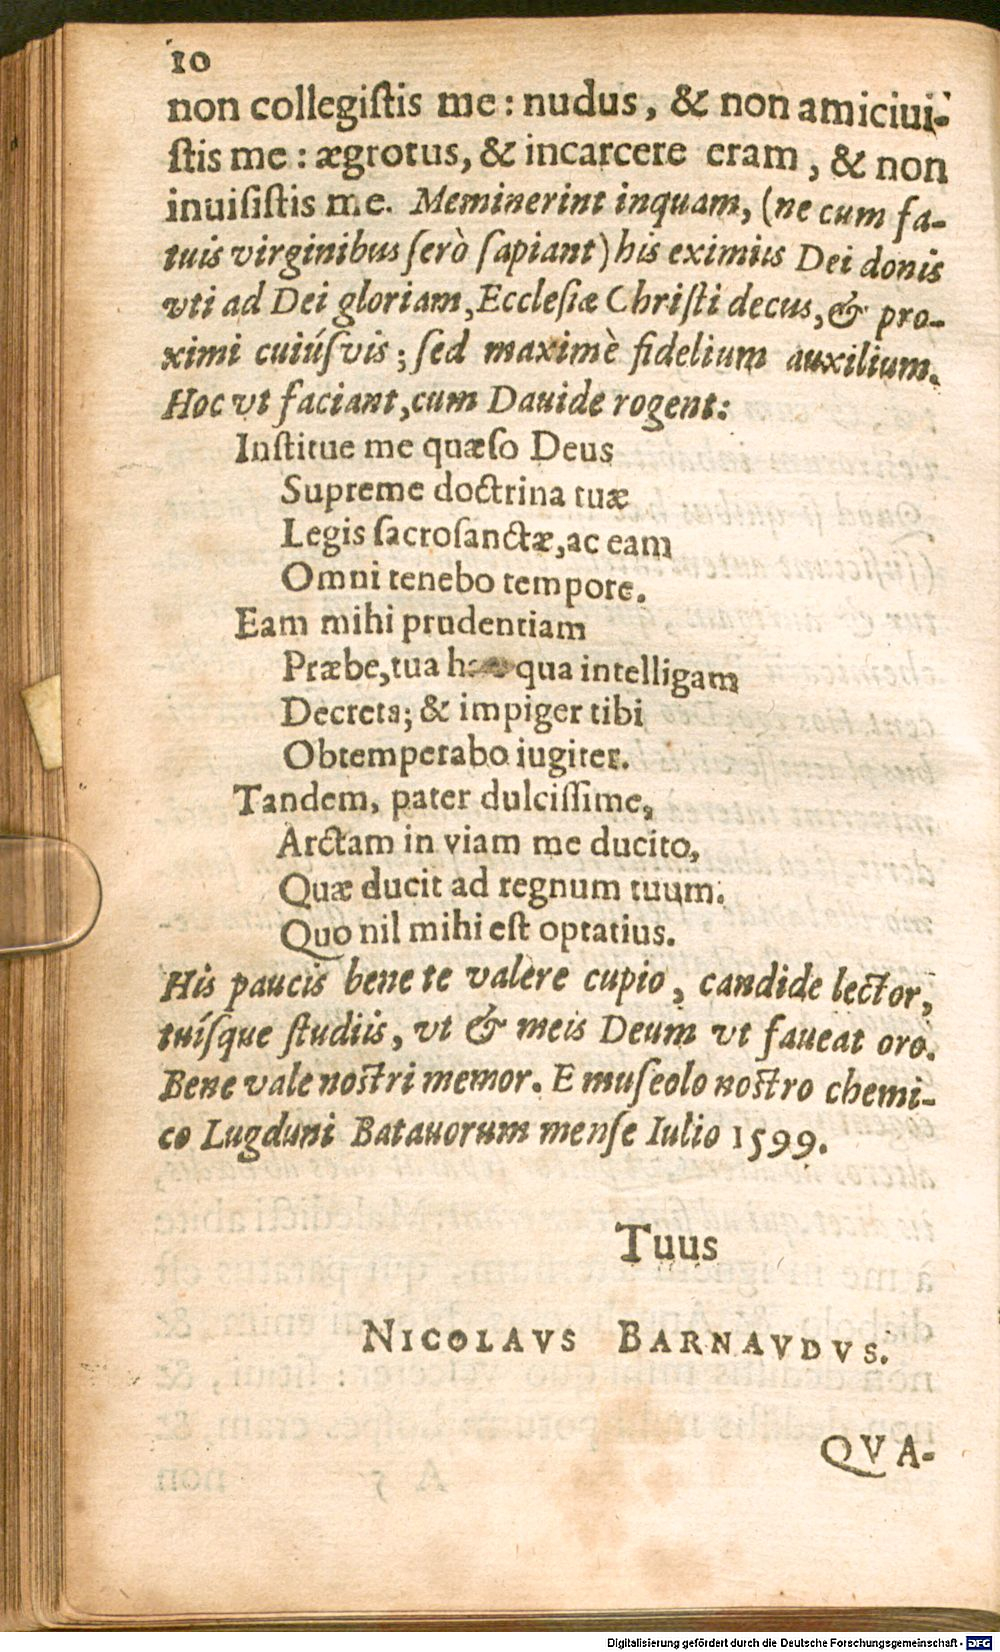 10
non collegiſtis me: nudus, & non amiciui-
ſtis me: ægrotus, & incarcere eram, & non
inuiſiſtis me. Meminerint inquam, (ne cum fa-
tuis virginibus ſerò ſapiant) his eximiis Dei donis
vti ad Dei gloriam, Eccleſiæ Chriſti decus, & pro-
ximi cuiúſvis; ſed maximè fidelium auxilium.
Hoc vt faciant, cum Dauide rogent:
Inſtitue me quæſo Deus
Supreme doctrina tuæ
Legis ſacroſanctæ, ac eam
Omni tenebo tempore.
Eam mihi prudentiam
Præbe, tua qua intelligam
Decreta; & impiger tibi
Obtemperabo iugiter.
Tandem, pater dulciſſime,
Arctam in viam me ducito,
Quæ ducit ad regnum tuum.
Quo nil mihi eſt optatius.
His paucis bene te valere cupio, candide lector,
tuíſque ſtudiis, vt & meis Deum vt faueat oro.
Bene vale noſtri memor. E muſeolo noſtro chemi-
co Lugduni Batauorum menſe Iulio 1599.
Tuus
NICOLAVS BARNAVDVS.
QVA-
Digitalisierung gefördert durch die Deutsche Forschungsgemeinschaft - DFG